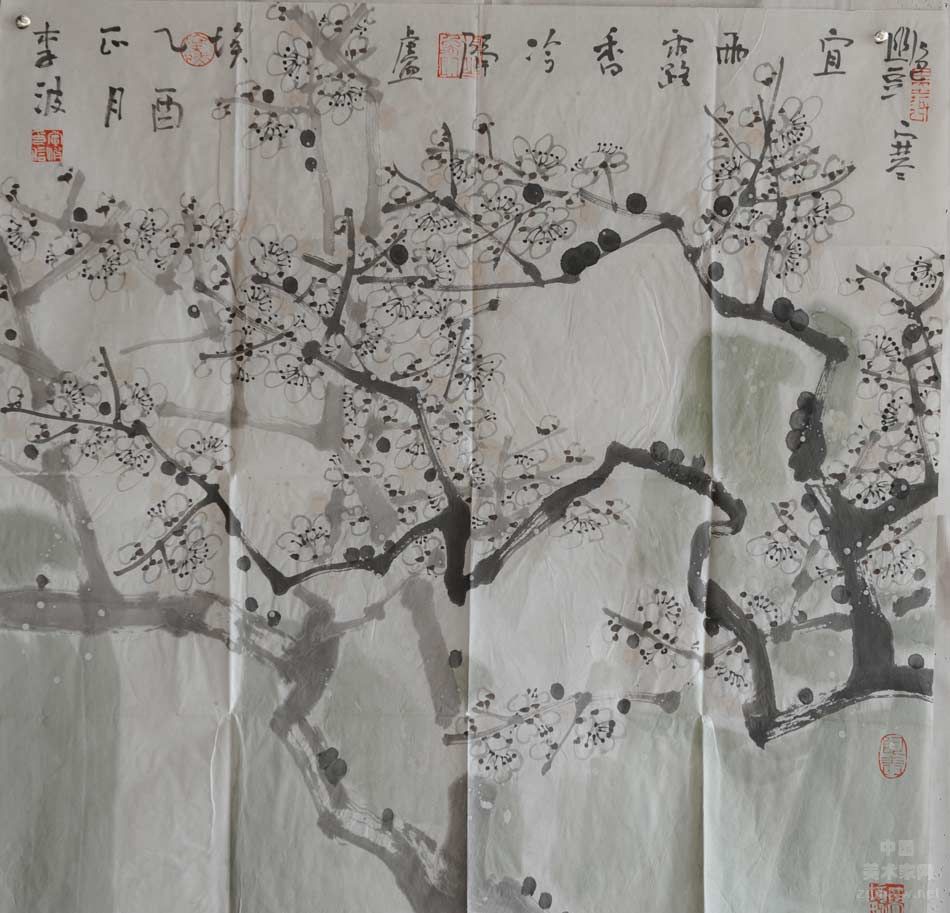 艷寒
宜
雨
露
香
冷
隔
埃
乙酉
正月
李波
中国
美术家网